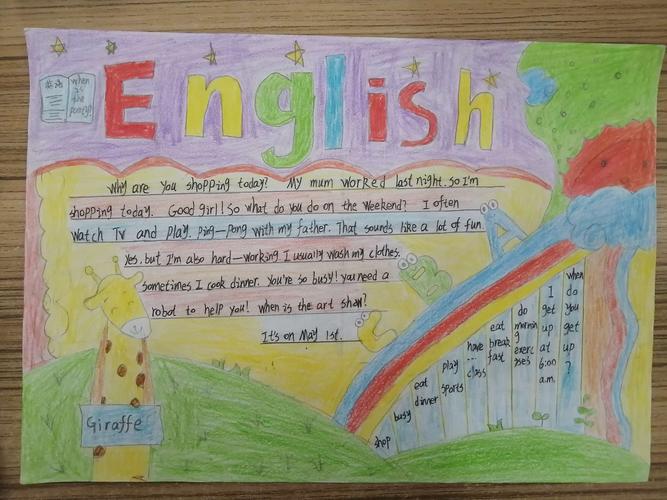 English
英语
when
is
the
party?
Why are you shopping today? My mum worked last night. So I'm
shopping today. Good girl! So what do you do on the weekend? I often
watch TV and play. ping-pong with my father. That sounds like a lot of fun.
Yes. but I'm also hard-working. I usually wash my clothes.
sometimes I cook dinner. you're so busy! you need a
robot to help you! when is the art show?
It's on May 1st.
A
B
C
Giraffe
shop
busy
eat
dinner
play
sports
have
...
class
eat
break
fast
do
mornin
g
exerc
ises
I
get
up
at
6:00
a.m.
when
do
you
get
up
?